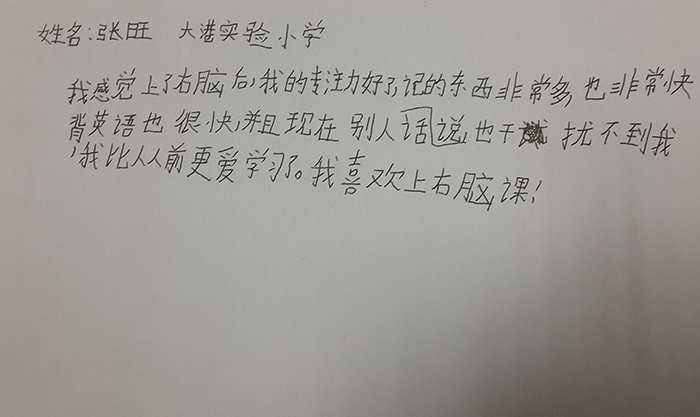 姓名:张旺 大港实验小学
我感觉上了右脑后,我的专注力好了,记的东西非常多,也非常快
背英语也很快,并且现在别人话说,也干扰不到我
,我比人人前更爱学习了。我喜欢上右脑,课!